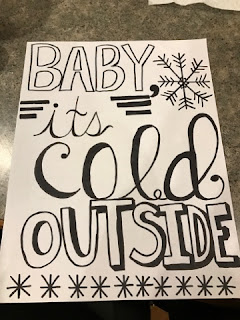 BABY,
its
cold
OUTSIDE